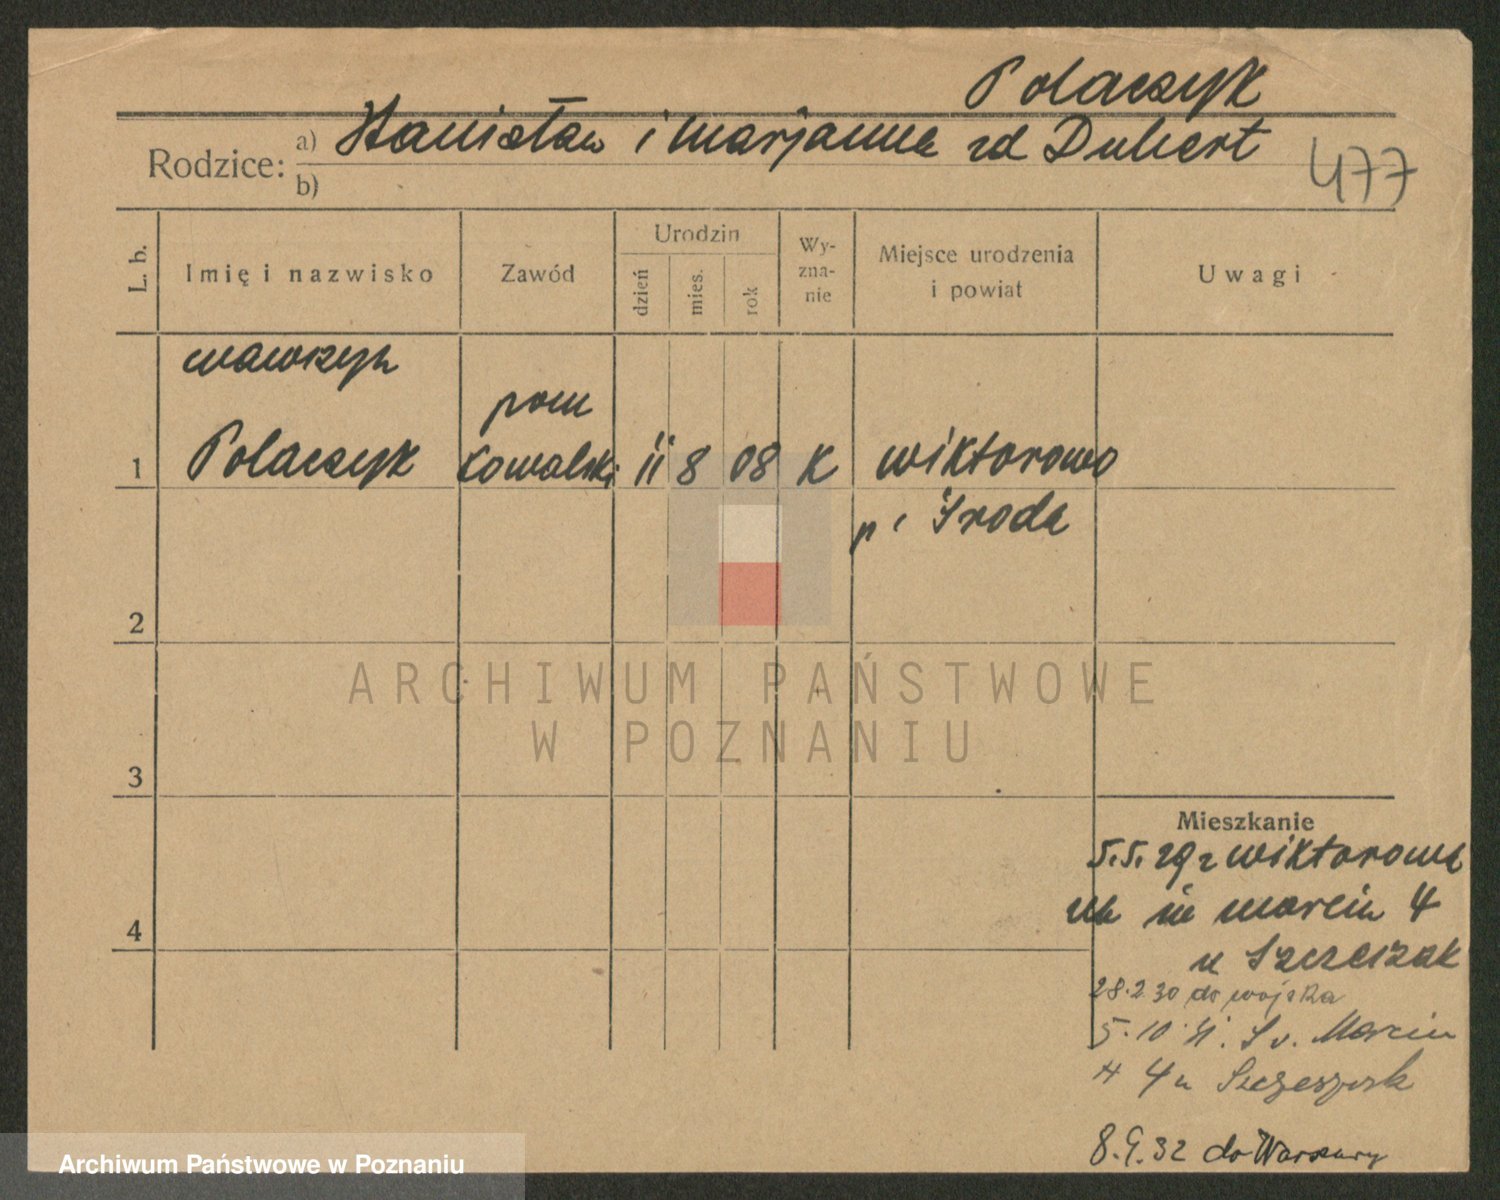 Polaczyk
Rodzice: a) Stanisław i Marjanna zd Dubert
b)
477
L. b.
Imię i nazwisko
Zawód
Urodzin
dzień
mies.
rok
Wy-
zna-
nie
Miejsce urodzenia
i powiat
Uwagi
wawrzyn
pom
1 Polaczyk kowalski 11 8 08 K wiktorowo
p. Sroda
2
3
4
ARCHIWUM PAŃSTWOWE
W POZNANIU
Mieszkanie
5.5.29 z wiktorowa
marcin 4
u
28.2.30 do wojska
5.10.31. Sv. Marcin
4 u
8.9.32 do Warszawy
Archiwum Państwowe w Poznaniu